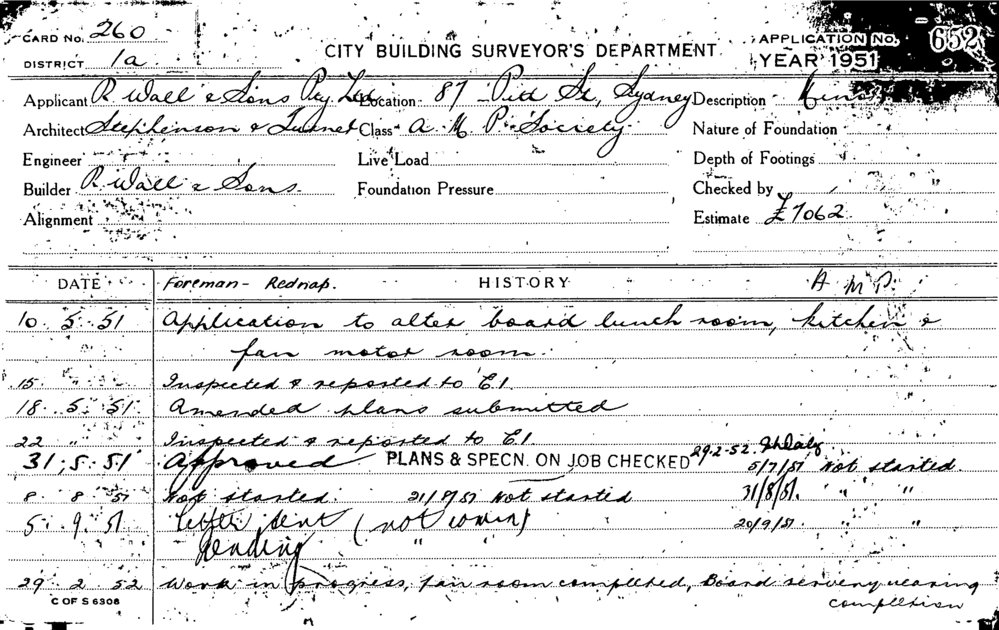 CARD No. 260
DISTRICT 1a
CITY BUILDING SURVEYOR'S DEPARTMENT
APPLICATION No. 652
YEAR 1951
Applicant R. Wall & Sons Pty Ltd Location 87 Pitt St, Sydney Description
Architect Stephenson & Turner Class A. M. P. Society Nature of Foundation
Engineer Live Load Depth of Footings
Builder R. Wall & Sons. Foundation Pressure Checked by
Alignment Estimate £7062
DATE Foreman - Rednap. HISTORY A M P.
10. 5. 51 Application to alter board lunch room, kitchen &
fan motor room.
15 " " Inspected & reported to C.I.
18. 5. 51. Amended plans submitted
22 " Inspected & reported to C.I.
31. 5. 51 Approved PLANS & SPECN. ON JOB CHECKED 29-2-52.
5/7/51 Not started
8. 8. 51 Not started. 21/8/51 Not started 31/8/51. " "
5. 9. 51 Letter sent (not) 20/9/51. " "
pending " "
29. 2. 52 Work in progress, fan room completed, Board servery nearing
completion
C OF S 6308